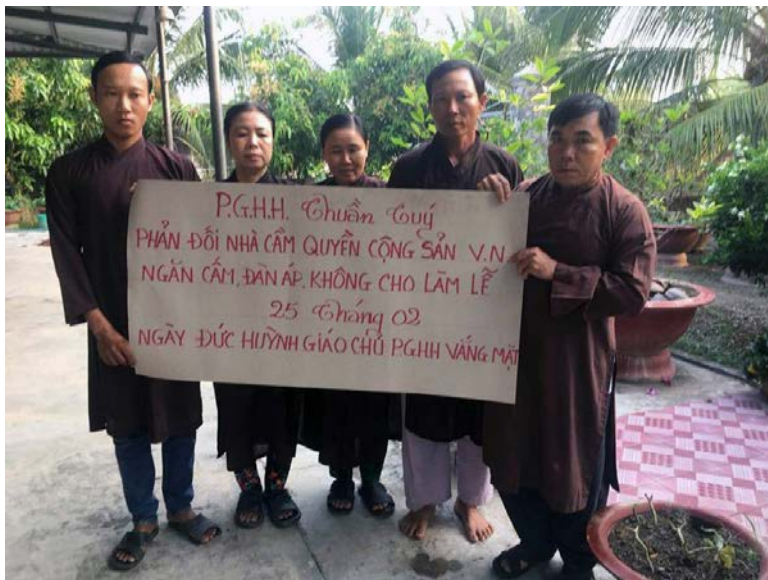 P.G.H.H. Thuần Tuý
PHẢN ĐỐI NHÀ CẦM QUYỀN CỘNG SẢN V.N
NGĂN CẤM, ĐÀN ÁP, KHÔNG CHO LÀM LỄ
25 Tháng 02
NGÀY ĐỨC HUỲNH GIÁO CHỦ P.GHH VẮNG MẶT